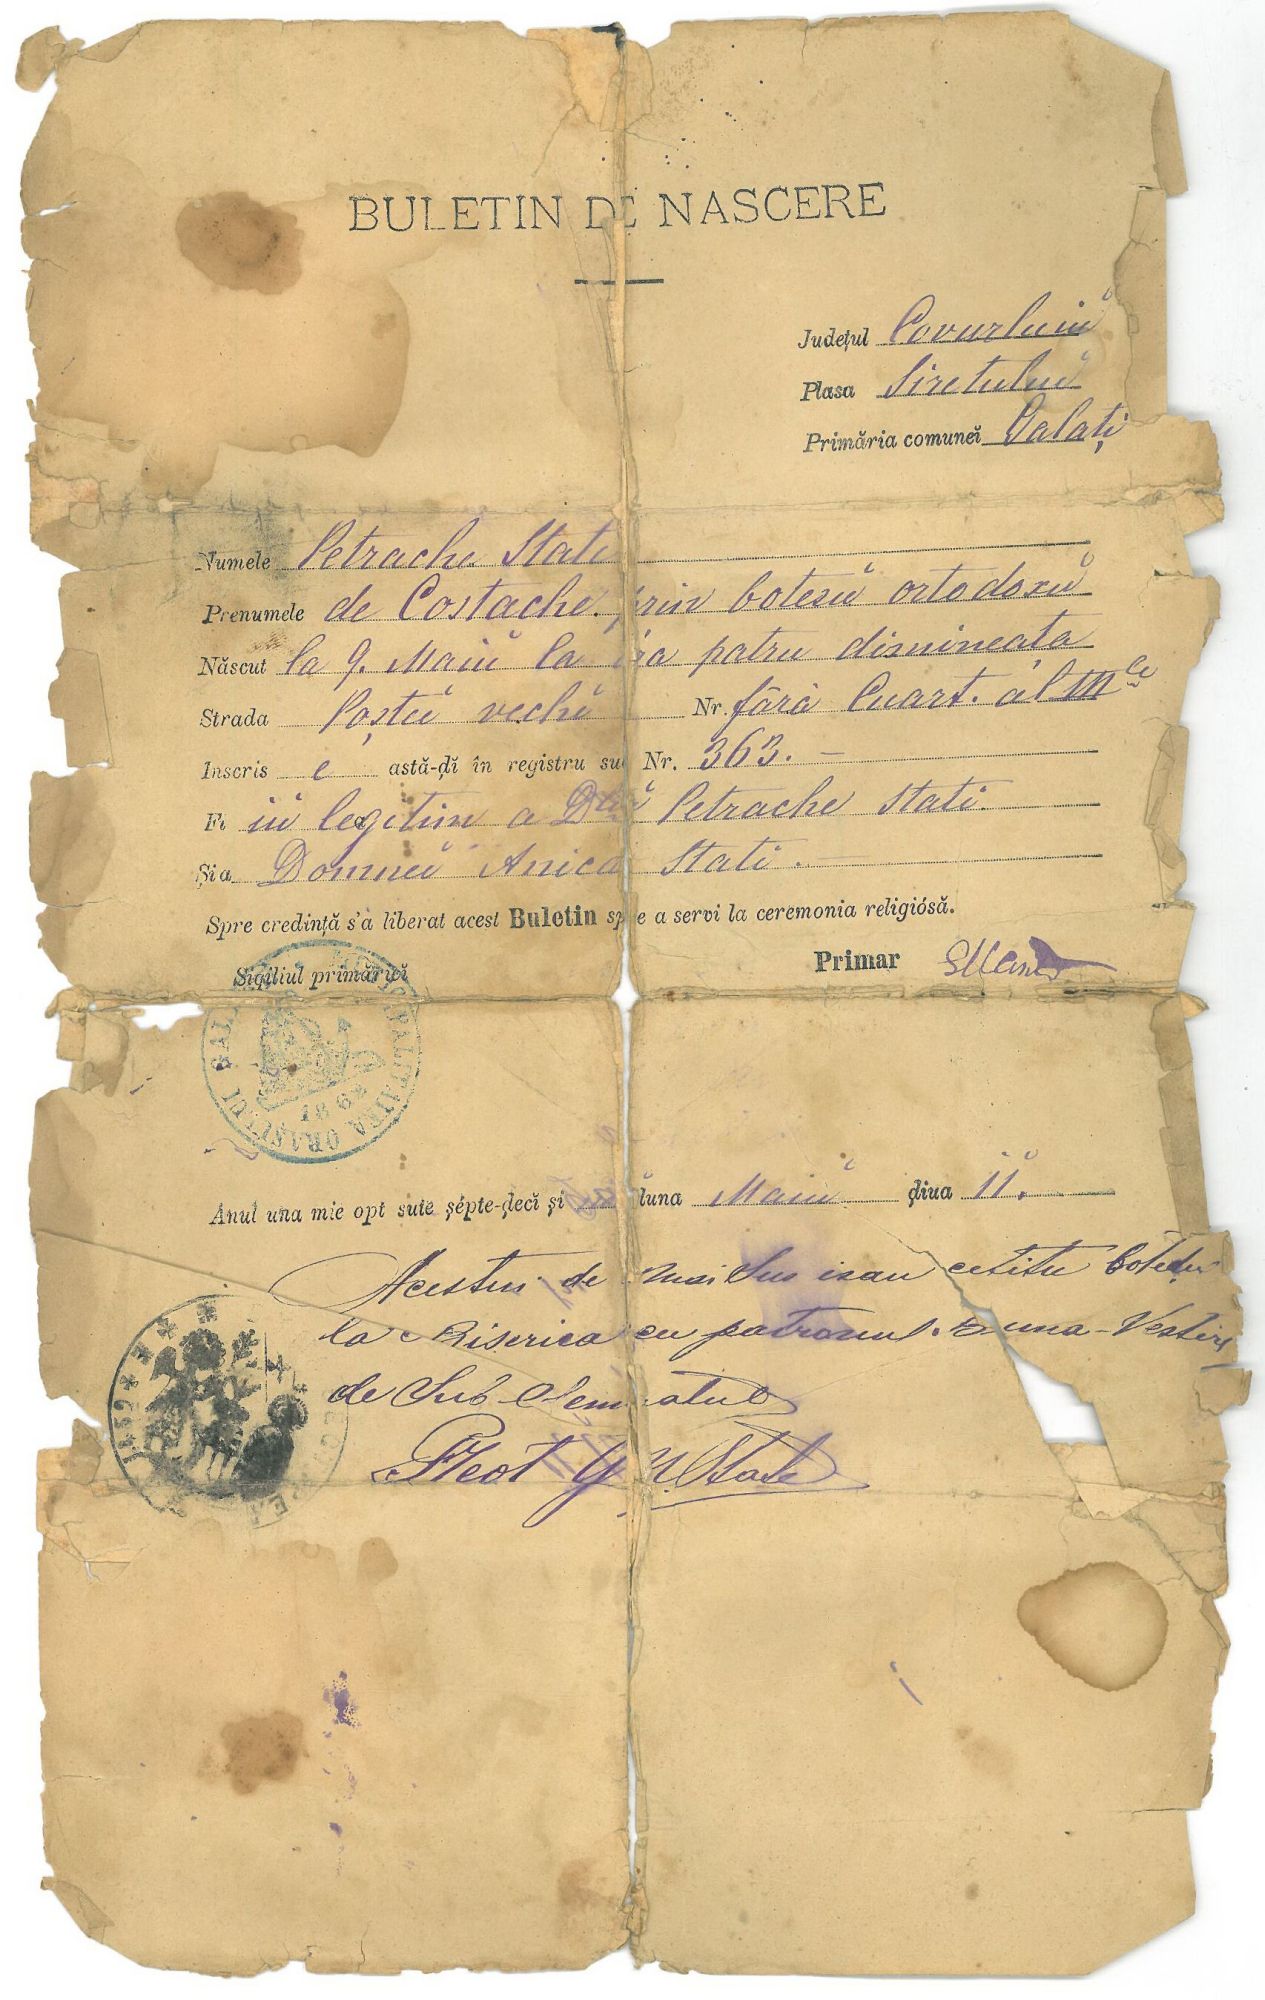 BULETIN DE NASCERE
Județul Covurluiŭ
Plasa Siretuluĭ
Primăria comuneĭ Galați
Numele Petrache Stati
Prenumele de Costache. prin botezŭ ortodoxŭ
Născut la 9. Maiŭ la ora patru dimineața
Strada Poștiĭ vechĭ Nr. fără Cuart. al III le
Inscris e astă-ḑĭ în registru sub Nr. 363.-
Fi iŭ legitim a Petrache Stati.
Și a Domneĭ Anica Stati.-
Spre credință s'a liberat acest Buletin spre a servi la ceremonia religiósă.
Sigiliul primărieĭ Primar
MUNICIPALITATEA ORAȘULUI GALAȚI
1862
Anul una mie opt sute șépte-ḑecĭ și luna Maiŭ ḑiua 11.
Acestui de mai sus isau cetitu Botezu
la Biserica cu patronul. Buna-Vestire
de Sub-Semnatul